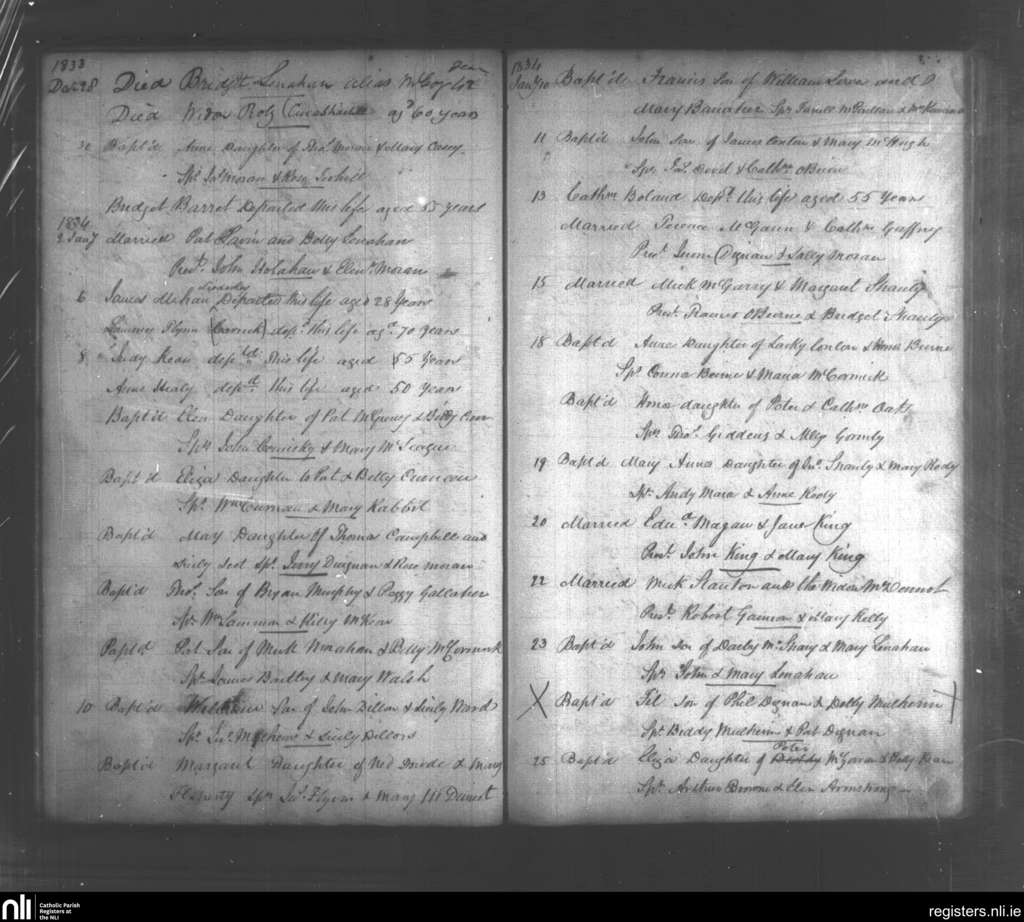 1833
Decr 28 Died Bridgt Lenahan alias McCoy
Died Widow Roly aged 60 years
Bapt'd Anne Daughter of Thos Moran & Mary Casey
Sprs Jas Moran & Rose
Bridget Barret Departed this life aged 55 years
1834
2 Jany Married Pat Flavin and Betty Lenahan
Prest John Holahan & Elinr Moran
6 James Mihan Departed this life aged 28 years
Flynn (Carrick) depd this life agd 70 years
8 Judy Kean deptd this life aged 55 years
Anne Healy deptd this life aged 50 years
Bapt'd Elen Daughter of Pat McGreevy & Betty
Sprs John Cornisky & Mary McTeague
Bapt'd Eliza Daughter to Pat & Betty
Sprs Wm Curnan & Mary Rabbit
Bapt'd Mary Daughter of Thomas Campbell and
Sicily Scot Sps Jerry Duignan & Rose Moran
Bapt'd Thos Son of Bryan Murphy & Peggy Gallaher
Sprs Wm Lammon & Kitty McKeon
Bapt'd Pat Son of Mick Monahan & Betty McCormick
Sprs James Bradley & Mary Walsh
10 Bapt'd William Son of John Dillon & Sicily Ward
Sprs Jas & Sicily Dillon
Bapt'd Margaret Daughter of Ned & Mary
Flaherty Sprs Jas Flynn & Mary McDermot
1834
Jany 10 Bapt'd Francis Son of William and
Mary Banaher Sprs
11 Bapt'd John Son of James Conlon & Mary McHugh
Sprs Jas Dowd & Cathne OBeirne
13 Cathne Boland Dept this life aged 55 years
Married Terence McGann & Cathne Gaffney
Prest Dignan & Sally Moran
15 Married Mick McGarry & Margaret Shanly
Prest Francis OBeirne & Bridget Shanly
18 Bapt'd Anne Daughter of Lacky Conlon & Honor Beirne
Sprs Connor Beirne & Maria McCormick
Bapt'd Honor daughter of Peter & Cathne Oaks
Sprs Thos Giddens & Ally Gormly
19 Bapt'd Mary Anne Daughter of Jas Shanly & Mary Rody
Sprs Andy Mara & Anne Rody
20 Married Edwd Magan & Jane King
Prest John King & Mary King
22 Married Mick Stanton and the Widow McDermot
Prest Robert Gannon & Mary Kelly
23 Bapt'd John Son of Darby McSharry & Mary Lenahan
Sprs John & Mary Lenahan
X Bapt'd Fil Son of Phil Dignan & Dolly Mulhern X
Sprs Biddy Mulhern & Pat Dignan
25 Bapt'd Eliza Daughter of Peter McGovran & Betty
Sprs Arthur Browne & Elen Armstrong
nli
Catholic Parish
Registers at
the NLI
registers.nli.ie